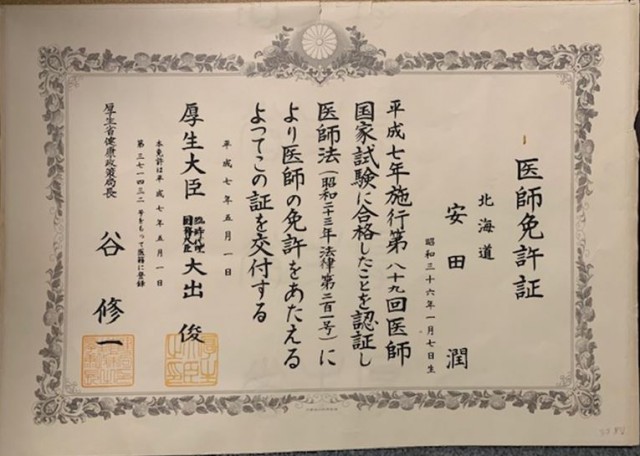 医師免許証
北海道
安田 潤
昭和三十六年一月七日生
平成七年施行第八十九回医師
国家試験に合格したことを認証し
医師法(昭和二十三年法律第二百一号)に
より医師の免許をあたえる
よってこの証を交付する
平成七年五月一日
厚生大臣
臨時代理
国務大臣
大出 俊
本免許は平成七年五月一日
第三七一四三二号をもって医籍に登録
厚生省健康政策局長
谷 修一